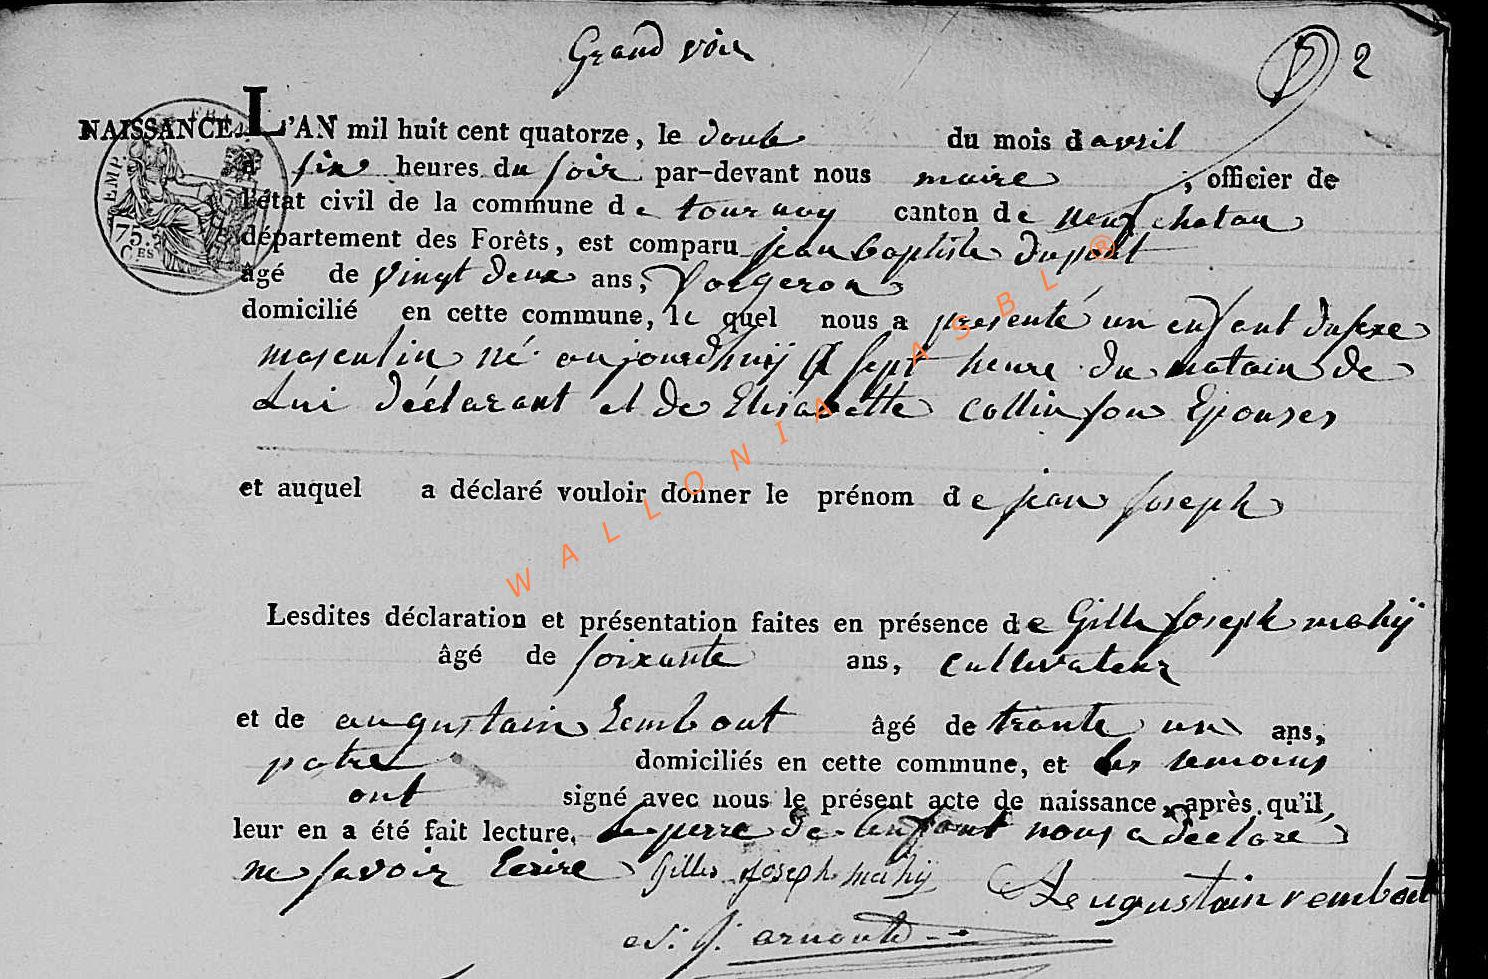 Grand voir
2
NAISSANCE. L'AN mil huit cent quatorze, le douse du mois d avril
à six heures du soir par-devant nous maire, officier de
l'état civil de la commune de tournay canton de neufchatau
département des Forêts, est comparu jean baptiste dupont
âgé de vingt deux ans, forgeron
domicilié en cette commune, le quel nous a presenté un enfant du sexe
masculin né aujourdhuij a sept heure du matain de
Lui déclarant et de Elisabette Collin son Epouses
et auquel a déclaré vouloir donner le prénom de jean joseph
Lesdites déclaration et présentation faites en présence de Gille joseph mahij
âgé de soixante ans, cultivateur
et de augustain rembout âgé de trante un ans,
patre domiciliés en cette commune, et les temoins
ont signé avec nous le présent acte de naissance, après qu'il
leur en a été fait lecture. le perre de lenfant nous a declare
ne savoir Ecrire Gilles joseph mahij augustain rembout
arnould
EMP.
75.
CES
WALLONIA ASBL ®